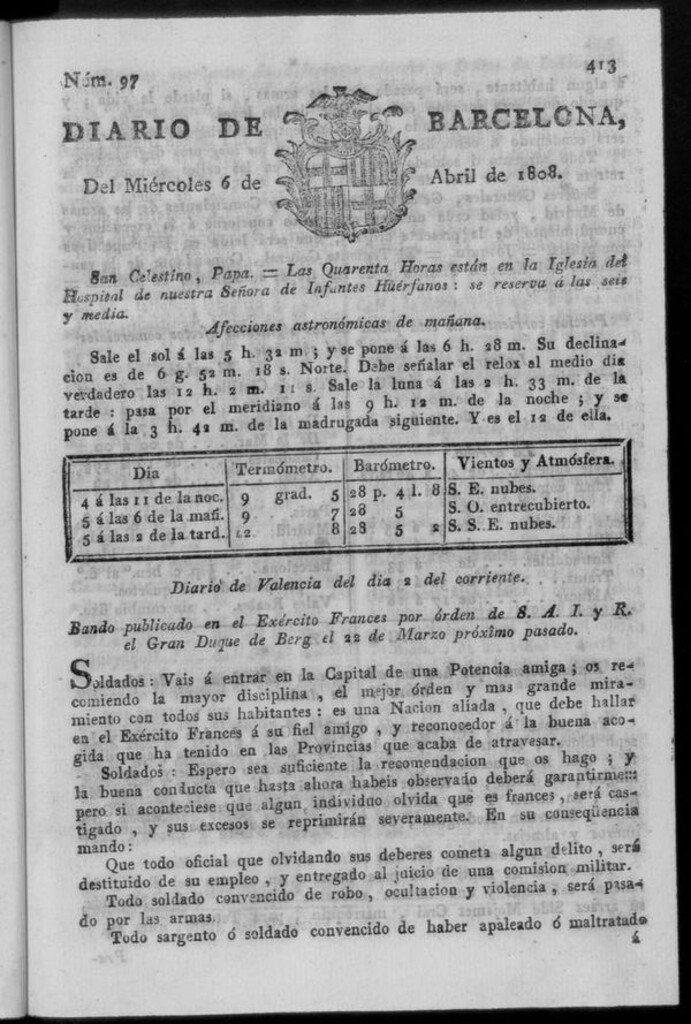 Núm. 97
413
DIARIO DE BARCELONA,
Del Miércoles 6 de Abril de 1808.
San Celestino, Papa. = Las Quarenta Horas están en la Iglesia del
Hospital de nuestra Señora de Infantes Huérfanos: se reserva á las seis
y media.
Afecciones astronómicas de mañana.
Sale el sol á las 5 h. 32 m.; y se pone á las 6 h. 28 m. Su declina-
cion es de 6 g. 52 m. 18 s. Norte. Debe señalar el relox al medio dia
verdadero las 12 h. 2 m. 11 s. Sale la luna á las 2 h. 33 m. de la
tarde: pasa por el meridiano á las 9 h. 12 m. de la noche; y se
pone á la 3 h. 42 m. de la madrugada siguiente. Y es el 12 de ella.
Dia Termómetro. Barómetro. Vientos y Atmósfera.
4 á las 11 de la noc. 9 grad. 5 28 p. 4 l. 8 S. E. nubes.
5 á las 6 de la mañ. 9 7 28 5 S. O. entrecubierto.
5 á las 2 de la tard. 12 8 28 5 2 S. S. E. nubes.
Diario de Valencia del dia 2 del corriente.
Bando publicado en el Exército Frances por órden de S. A. I. y R.
el Gran Duque de Berg el 22 de Marzo próximo pasado.
Soldados: Vais á entrar en la Capital de una Potencia amiga; os re-
comiendo la mayor disciplina, el mejor órden y mas grande mira-
miento con todos sus habitantes: es una Nacion aliada, que debe hallar
en el Exército Frances á su fiel amigo, y reconocedor á la buena aco-
gida que ha tenido en las Provincias que acaba de atravesar.
Soldados: Espero sea suficiente la recomendacion que os hago; y
la buena conducta que hasta ahora habeis observado deberá garantirme:::
pero si aconteciese que algun individuo olvida que es frances, será cas-
tigado, y sus excesos se reprimirán severamente. En su conseqüencia
mando:
Que todo oficial que olvidando sus deberes cometa algun delito, será
destituido de su empleo, y entregado al juicio de una comision militar.
Todo soldado convencido de robo, ocultacion y violencia, será pasa-
do por las armas.
Todo sargento ó soldado convencido de haber apaleado ó maltratado
á